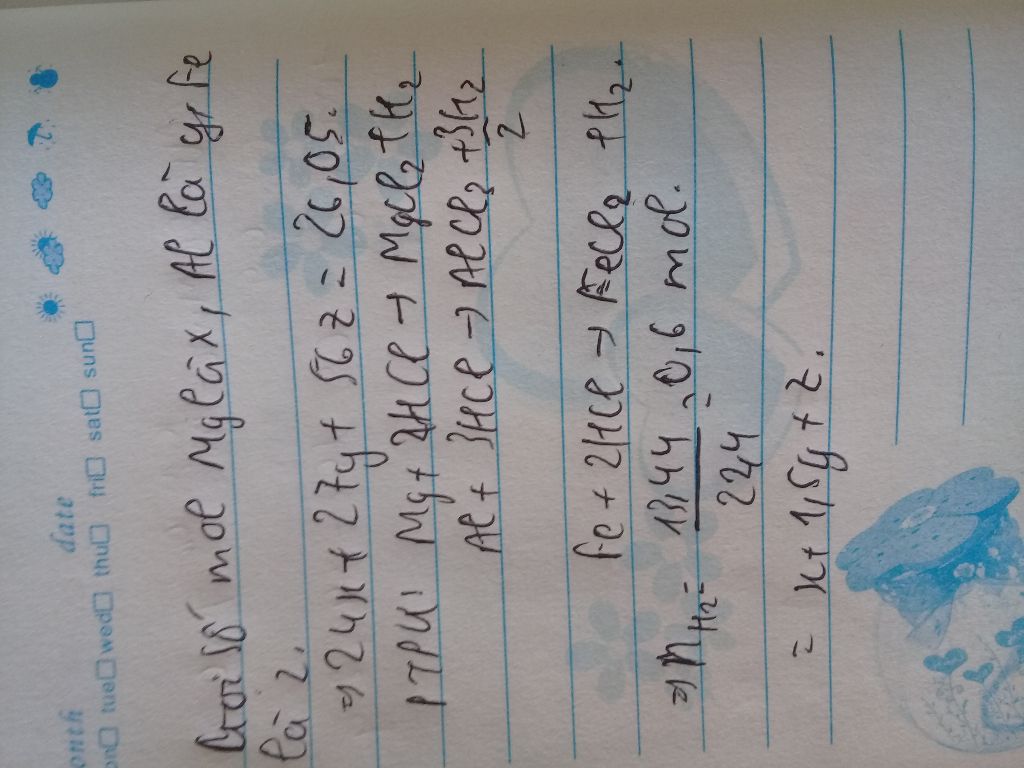 onth date
on tue wed thu fri sat sun
Gọi số mol Mg là x, Al là y, Fe
là z.
=> 24x + 27y + 56z = 26,05.
PTPU: Mg + 2HCl → MgCl2 + H2
Al + 3HCl → AlCl3 + 3/2 H2
Fe + 2HCl → FeCl2 + H2.
=> nH2 = 13,44/22,4 = 0,6 mol.
= x + 1,5y + z.